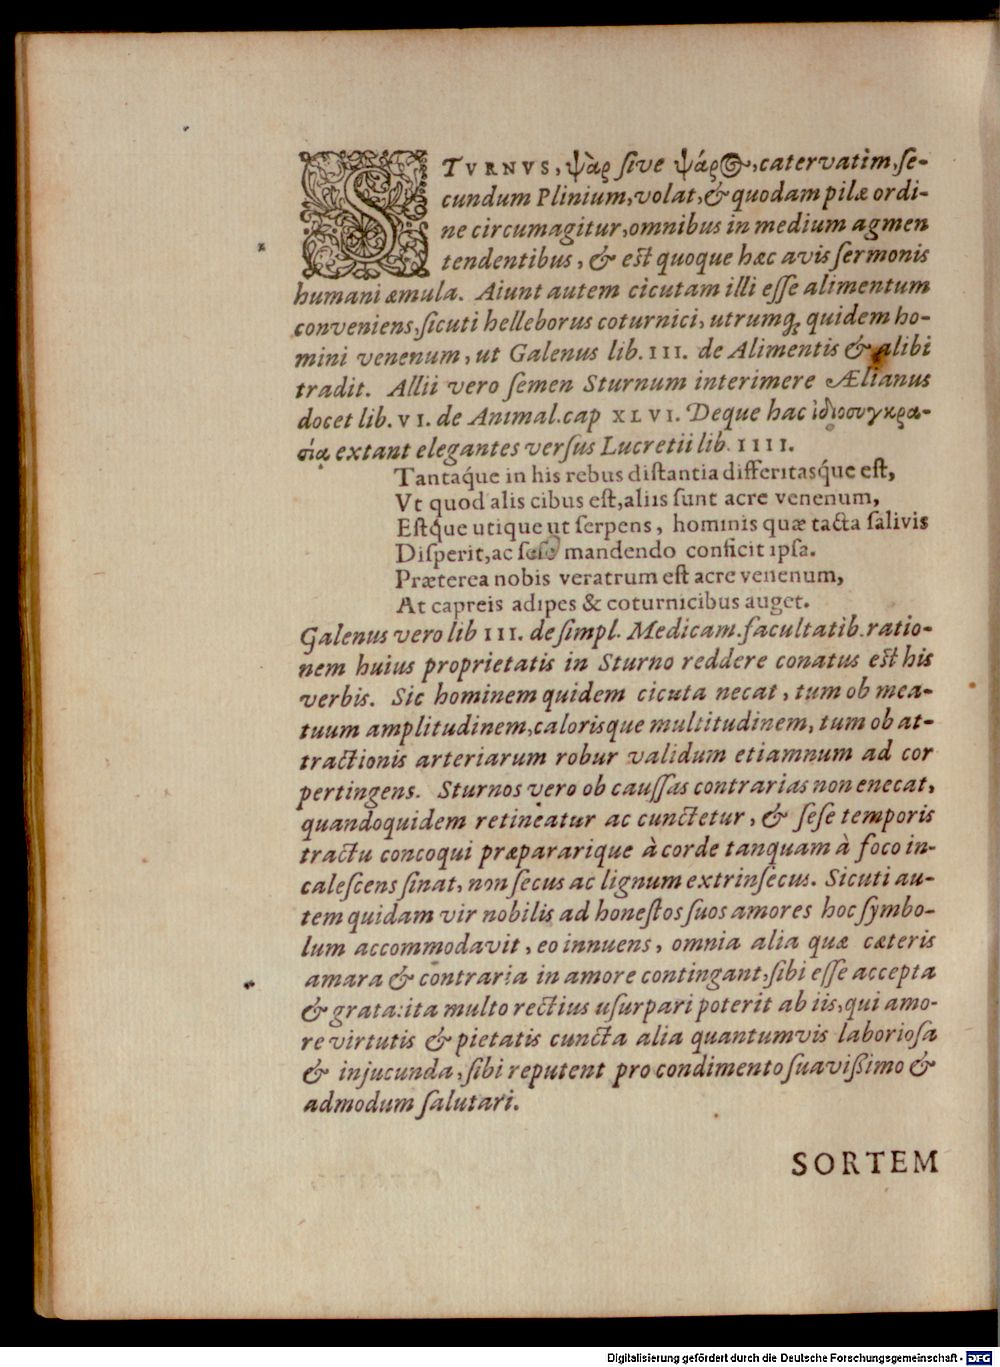 STVRNVS, ψὰρ ſive ψάρος, catervatim, ſe-
cundum Plinium, volat, & quodam pilæ ordi-
ne circumagitur, omnibus in medium agmen
tendentibus, & eſt quoque hæc avis ſermonis
humani æmula. Aiunt autem cicutam illi eſſe alimentum
conveniens, ſicuti helleborus coturnici, utrumq; quidem ho-
mini venenum, ut Galenus lib. III. de Alimentis & alibi
tradit. Allii vero ſemen Sturnum interimere Ælianus
docet lib. VI. de Animal. cap XLVI. Deque hac ἰδιοσυγκρα-
σίᾳ extant elegantes verſus Lucretii lib. IIII.
Tantaq́ue in his rebus diſtantia differitasq́ue eſt,
Vt quod alis cibus eſt, aliis ſunt acre venenum,
Eſtq́ue utique ut ſerpens, hominis quæ tacta ſalivis
Diſperit, ac ſeſe mandendo conficit ipſa.
Præterea nobis veratrum eſt acre venenum,
At capreis adipes & coturnicibus auget.
Galenus vero lib III. de ſimpl. Medicam. facultatib. ratio-
nem huius proprietatis in Sturno reddere conatus eſt his
verbis. Sic hominem quidem cicuta necat, tum ob mea-
tuum amplitudinem, calorisque multitudinem, tum ob at-
tractionis arteriarum robur validum etiamnum ad cor
pertingens. Sturnos vero ob cauſſas contrarias non enecat,
quandoquidem retineatur ac cunctetur, & ſeſe temporis
tractu concoqui præpararique à corde tanquam à foco in-
caleſcens ſinat, non ſecus ac lignum extrinſecus. Sicuti au-
tem quidam vir nobilis ad honeſtos ſuos amores hoc ſymbo-
lum accommodavit, eo innuens, omnia alia quæ cæteris
amara & contraria in amore contingant, ſibi eſſe accepta
& grata: ita multo rectius uſurpari poterit ab iis, qui amo-
re virtutis & pietatis cuncta alia quantumvis laborioſa
& injucunda, ſibi reputent pro condimento ſuavißimo &
admodum ſalutari.
SORTEM
Digitalisierung gefördert durch die Deutsche Forschungsgemeinschaft - DFG